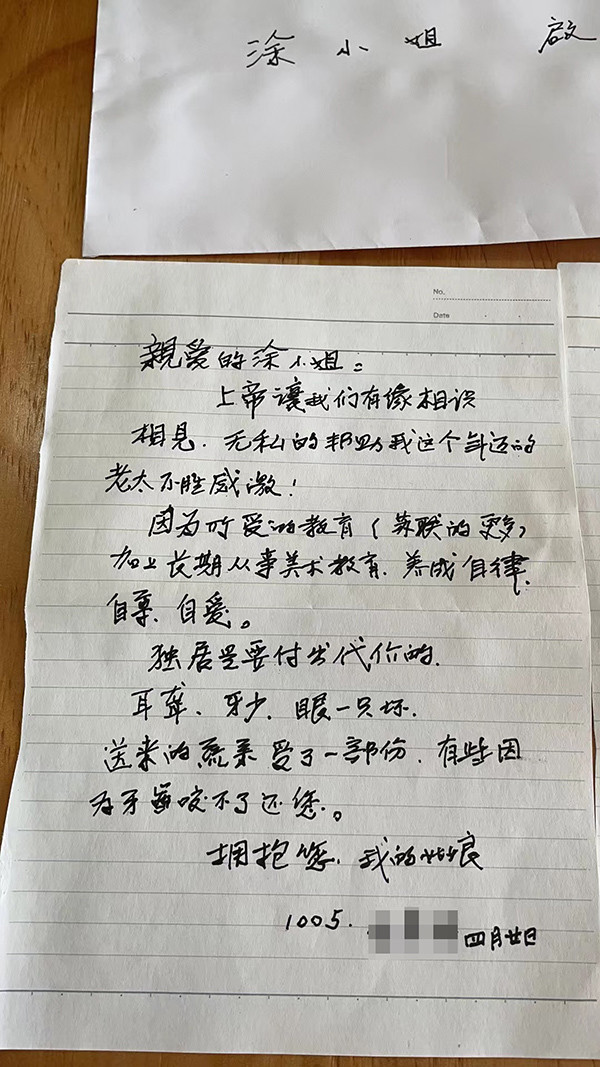 涂小姐 啟
No.
Date
親爱的涂小姐：
上帝讓我们有缘相识
相见．无私的邦助我这个年迈的
老太不胜感激！
因为所受的教育（苏联的更多）
加上长期从事美术教育．养成自律．
自尊．自爱。
独居是要付出代价的．
耳聋、牙少．眼一只坏．
送来的蔬菜受了一部份．有些因
为牙齒咬不了还您。
拥抱您．我的姑娘
1005． 四月廿日